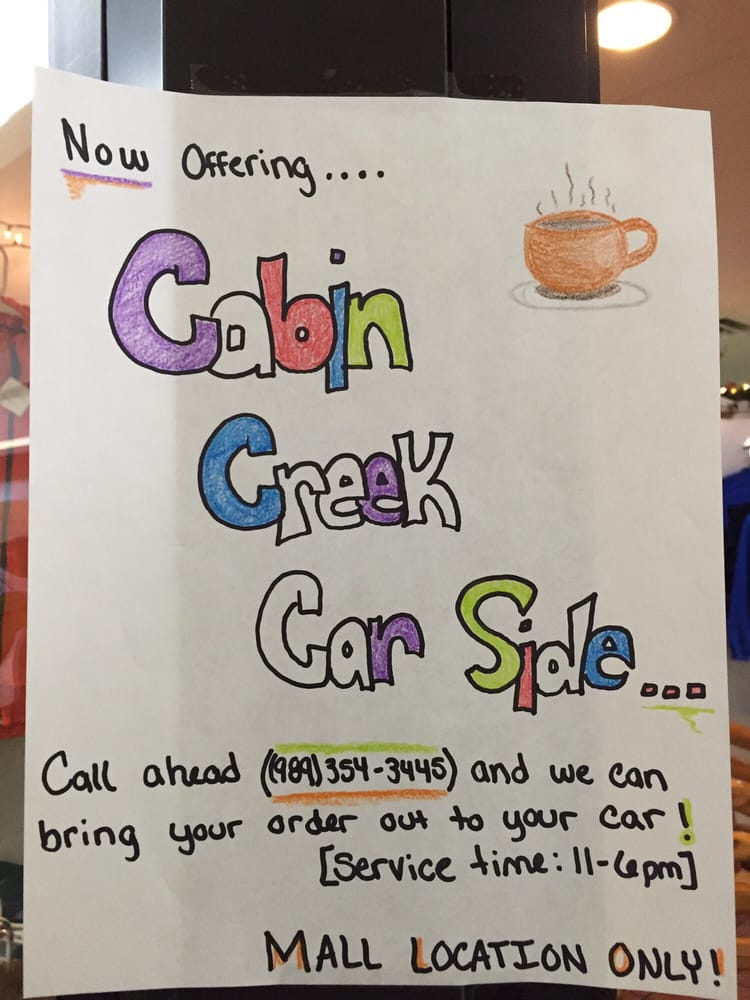 Now Offering....
Cabin
Creek
Car Side...
Call ahead ((989)354-3445) and we can
bring your order out to your car!
[Service time: 11-6pm]
MALL LOCATION ONLY!